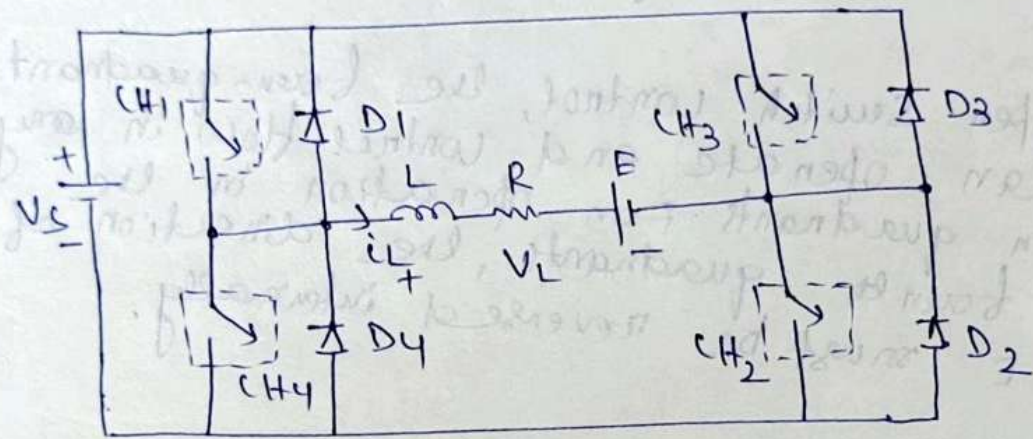 CH1
D1
CH3
D3
+
L
R
E
VS
-
iL
+
VL
-
D4
CH4
CH2
D2